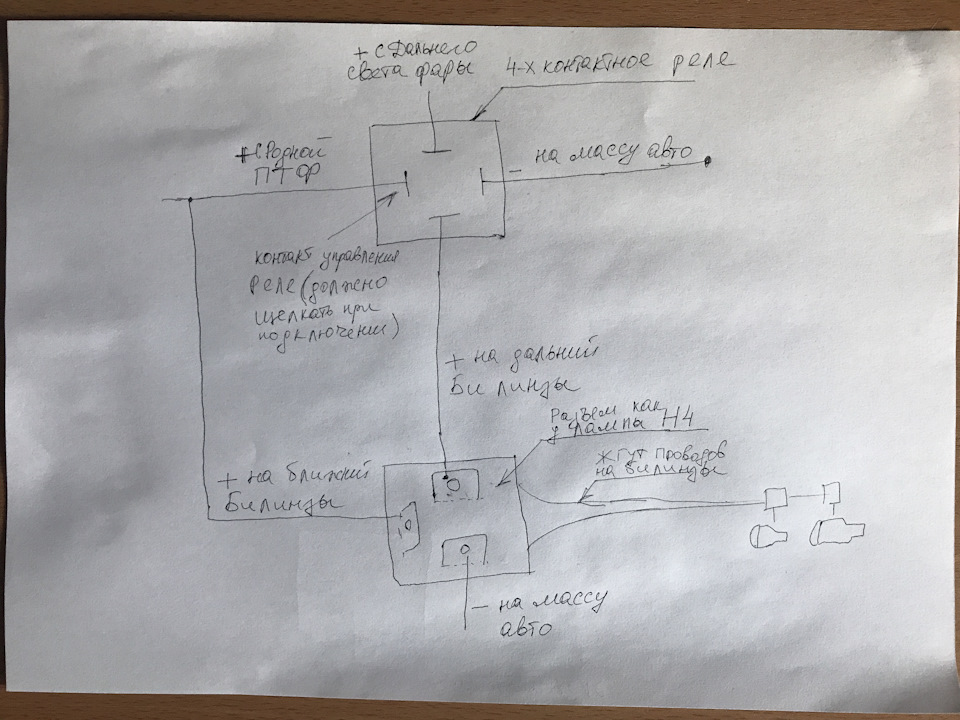 + с Дальнего
света фары
4-х контактное реле
+ с Родной
ПТФ
- на массу авто
контакт управления
реле (должно
щелкать при
подключении)
+ на дальний
Би линзы
Разъем как
у лампы H4
жгут проводов
на билинзы
+ на ближний
Билинзы
- на массу
авто